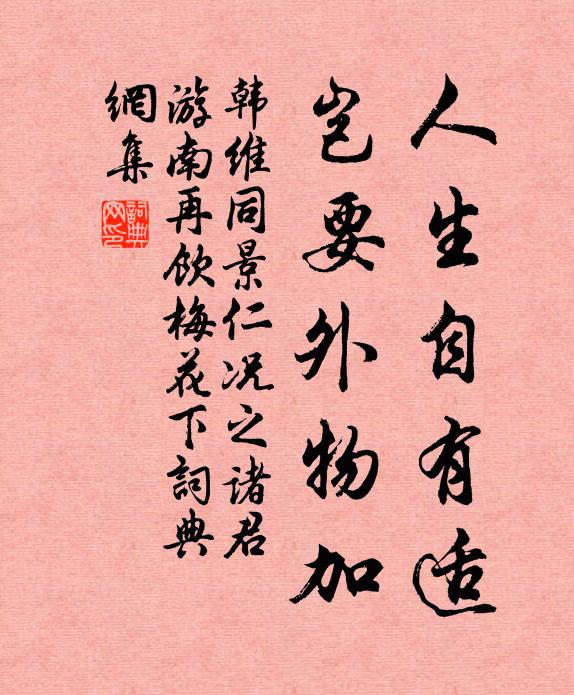 人生自有适
岂要外物加
韩维同景仁况之诸君
游南再饮梅花下詞典
網集
詞典
网印